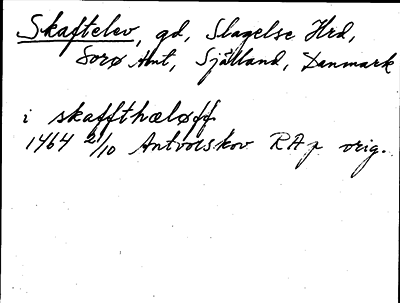 Skaftelev, gd, Slagelse Hrd,
Sorø Amt, Själland, Danmark
i skaffthæløff
1464 21/10 Antvorskov RA p orig.